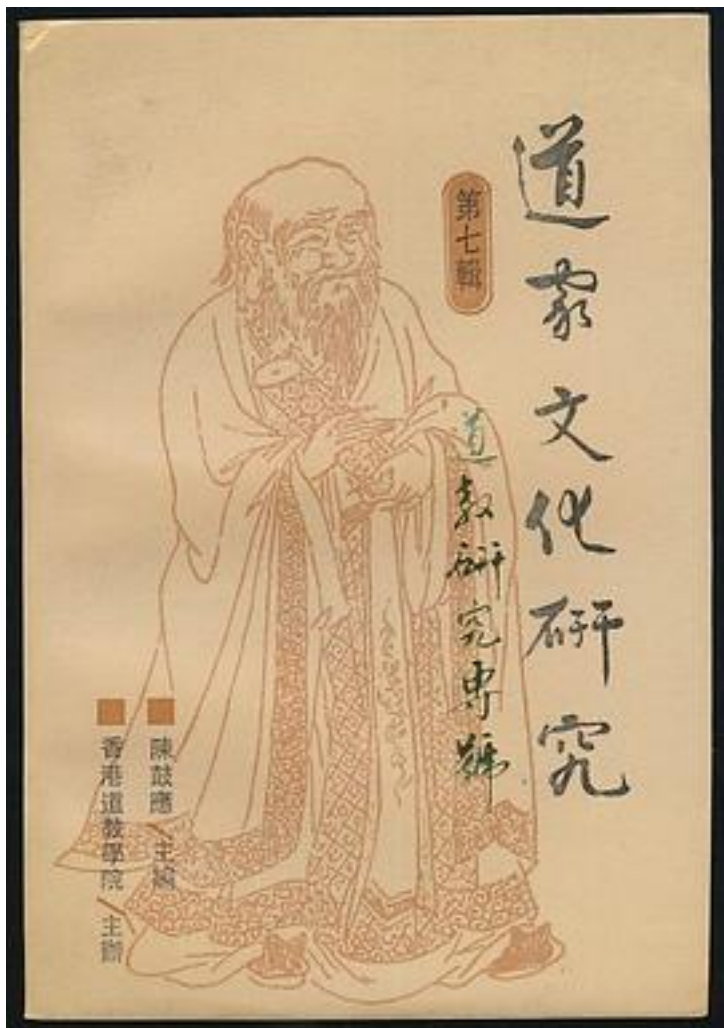 道家文化研究
第七輯
道教研究專號
陳鼓應／主編
香港道教學院／主辦